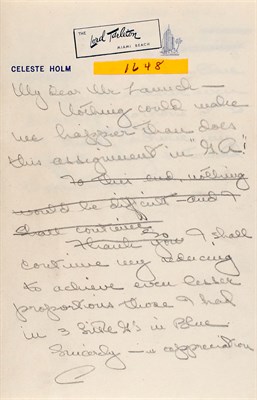 THE
Lord Tarleton
MIAMI BEACH
CELESTE HOLM
1648
My dear Mr Zanuck —
Nothing could make
me happier than does
this assignment in "G.A."!
To this end, nothing
would be difficult and I
shall continue
Thank you. I shall
continue my reducing
to achieve even lesser
proportions those I had
in 3 Little G's in Blue
Sincerely — in appreciation
C